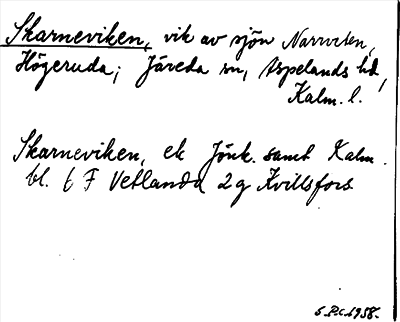 Skarneviken, vik av sjön Narrveten,
Högeruda; Järeda sn, Aspelands hd,
Kalm. l.
Skarneviken, ek Jönk. samt Kalm.
bl. 6 F Vetlanda 2 g Kvillsfors
S.P.C. 1958.